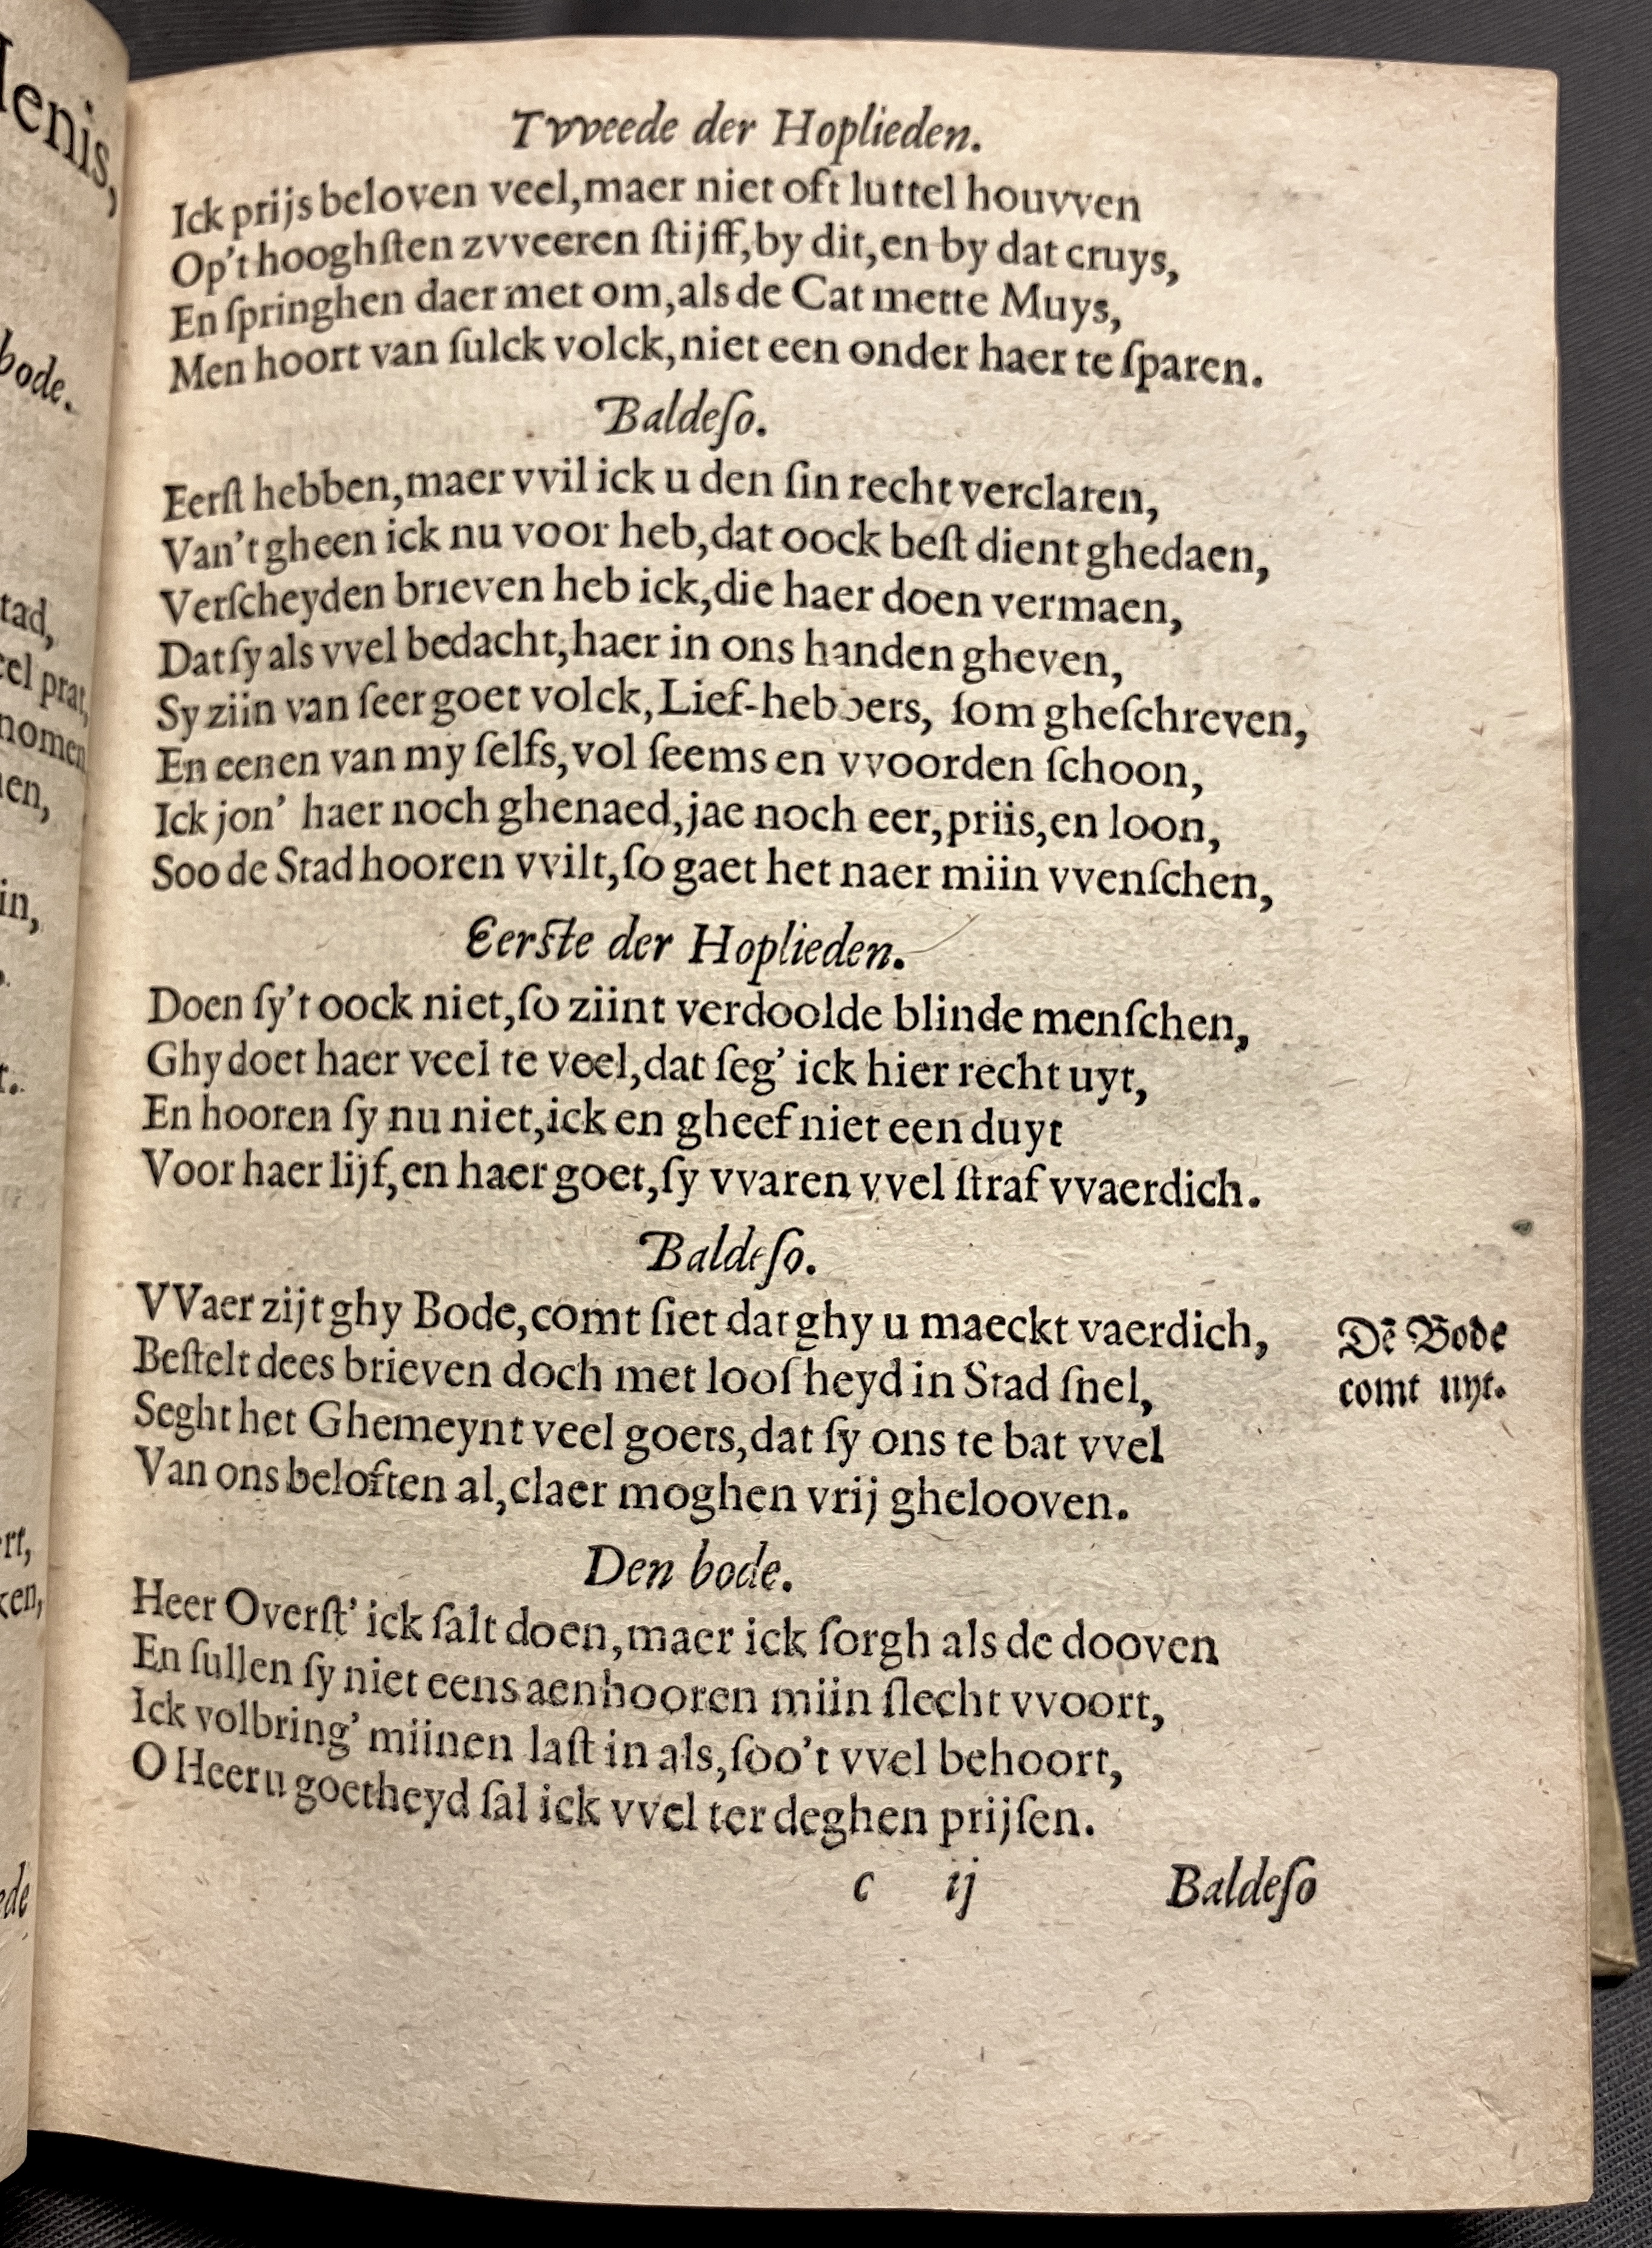 Tvveede der Hoplieden.
Ick prijs beloven veel,maer niet oft luttel houvven
Op't hooghſten zvveeren ſtijff,by dit,en by dat cruys,
En ſpringhen daer met om,als de Cat mette Muys,
Men hoort van ſulck volck,niet een onder haer te ſparen.
Baldeſo.
Eerſt hebben,maer vvil ick u den ſin recht verclaren,
Van't gheen ick nu voor heb,dat oock beſt dient ghedaen,
Verſcheyden brieven heb ick,die haer doen vermaen,
Dat ſy als vvel bedacht,haer in ons handen gheven,
Sy ziin van ſeer goet volck,Lief-hebbers, ſom gheſchreven,
En eenen van my ſelfs,vol ſeems en vvoorden ſchoon,
Ick jon' haer noch ghenaed,jae noch eer,priis,en loon,
Soo de Stad hooren vvilt,ſo gaet het naer miin vvenſchen,
Eerſte der Hoplieden.
Doen ſy't oock niet,ſo ziint verdoolde blinde menſchen,
Ghy doet haer veel te veel,dat ſeg' ick hier recht uyt,
En hooren ſy nu niet,ick en gheef niet een duyt
Voor haer lijf,en haer goet,ſy vvaren vvel ſtraf vvaerdich.
Baldeſo.
VVaer zijt ghy Bode,comt ſiet dat ghy u maeckt vaerdich,
Dē Bode
comt uyt.
Beſtelt dees brieven doch met looſheyd in Stad ſnel,
Seght het Ghemeynt veel goets,dat ſy ons te bat vvel
Van ons beloften al,claer moghen vrij ghelooven.
Den bode.
Heer Overſt' ick ſalt doen,maer ick ſorgh als de dooven
En ſullen ſy niet eens aenhooren miin ſlecht vvoort,
Ick volbring' miinen laſt in als,ſoo't vvel behoort,
O Heer u goetheyd ſal ick vvel ter deghen prijſen.
c ij Baldeſo